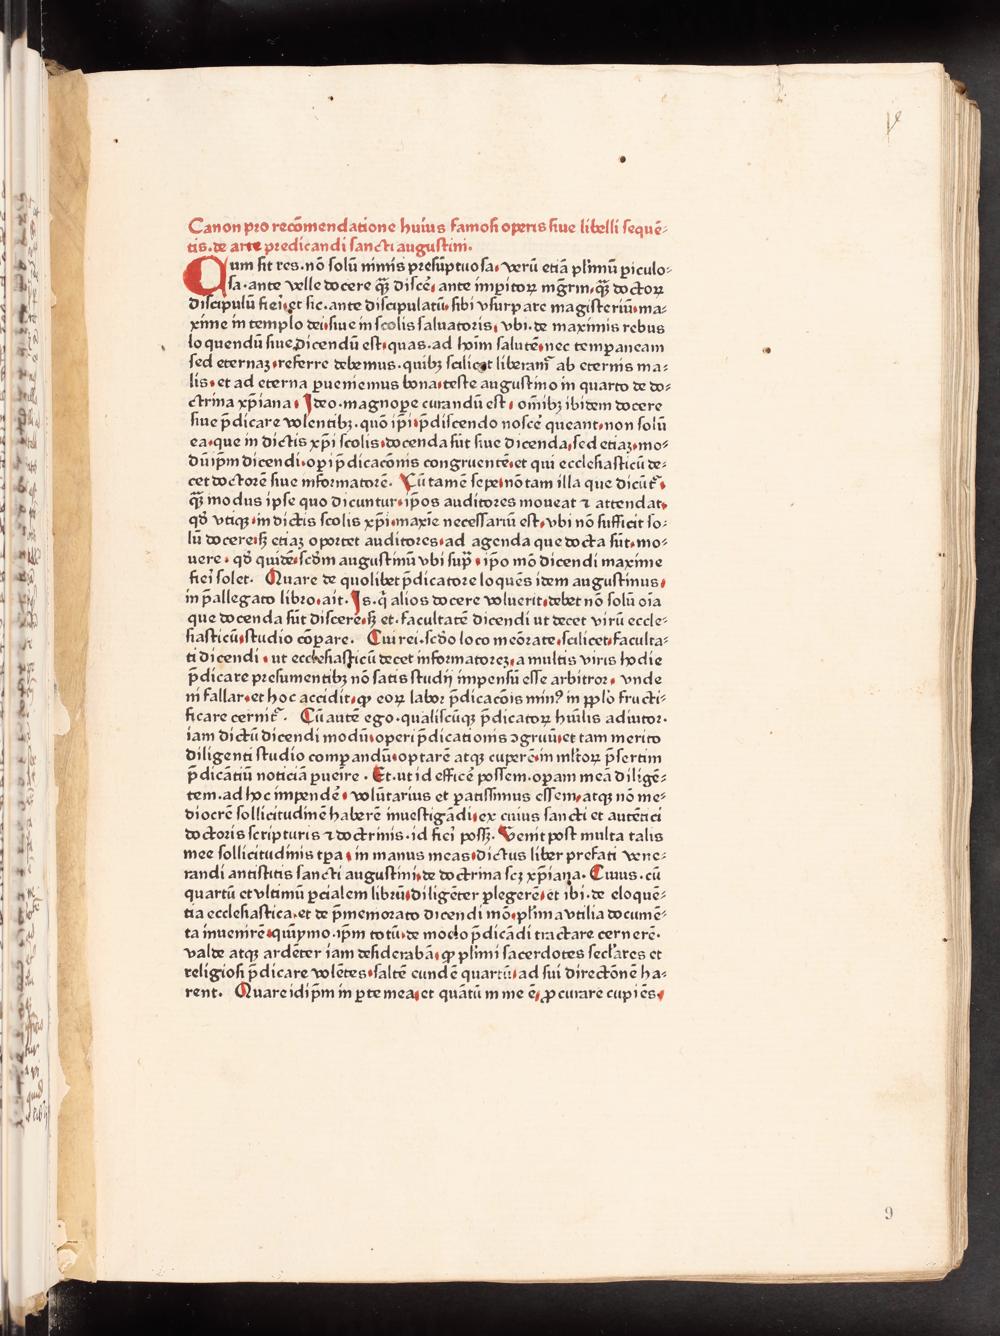 Canon pro recõmendatione huius famosi operis siue libelli sequẽ⸗
tis. de arte predicandi sancti augustini.
Cum sit res. nõ solũ nimis presũptuosa. verũ etiã plĩmũ ꝑiculo⸗
sa. ante velle docere qꝫ̃ discẽ. ante imꝑitoꝝ mg̃rm. qꝫ̃ doctoꝝ
discipulũ fieri. et sic. ante discipulatũ. sibi vsurpare magisteriũ. ma⸗
xime in templo dei. siue in scolis saluatoris. vbi. de maximis rebus
loquendũ siue dicendũ est. quas. ad hoĩm salutẽ. nec temꝑaneam
sed eternaꝫ. referre debemus. quibꝫ scilicet liberam̃ ab eternis ma⸗
lis. et ad eterna ꝑueniemus bona. teste augustino in quarto de do⸗
ctrina xp̃iana. Ideo. magnoꝑe curandũ est. om̃ibꝫ ibidem docere
siue p̃dicare volentibꝫ. quõ ip̃i p̃discendo noscẽ queant. non solũ
ea. que in dictis xp̃i scolis. docenda sũt siue dicenda. sed etiaꝫ. mo⸗
dũ ip̃m dicendi. oꝑi p̃dicacõnis congruentẽ. et qui ecclesiasticũ de⸗
cet doctorẽ siue informatorẽ. Cũ tamẽ sepe. nõ tam illa que dicũt̃.
qꝫ̃ modus ipse quo dicuntur. ip̃os auditores moueat ⁊ attendat.
qđ vtiqꝫ. in dictis scolis xp̃i. maxĩe necessariũ est. vbi nõ sufficit so⸗
lũ docere. sꝫ etiaꝫ oportet auditores. ad agenda que docta sũt. mo⸗
uere. qđ quidẽ. scđm augustinũ vbi sup̃. ip̃o mõ dicendi maxime
fieri solet. Quare de quolibet p̃dicatore loquẽs idem augustinus.
in p̃allegato libro. ait. Is. q̃ alios docere voluerit. debet nõ solũ oĩa
que docenda sũt discere. sꝫ et. facultatẽ dicendi ut decet virũ eccle⸗
siasticũ. studio cõꝑare. Cui rei. scđo loco meõrate. scilicet. faculta⸗
ti dicendi. ut ecclesiasticũ decet informatoreꝫ. a multis viris hodie
p̃dicare presumentibꝫ nõ satis studij impensũ esse arbitror. vnde
ni fallar. et hoc accidit. ꝙ eoꝝ labor p̃dicacõis minꝰ in ppl̃o fructi⸗
ficare cernit̃. Cũ autẽ ego. qualiscũqꝫ p̃dicatoꝝ hũilis adiutor.
iam dictũ dicendi modũ. operi p̃dicationis ↄgruũ. et tam merito
diligenti studio comꝑandũ. optarẽ atqꝫ cuperẽ. in ml̃toꝝ p̃sertim
p̃dicãtiũ noticiã ꝑueĩre. Et. ut id efficẽ possem. oꝑam meã diligẽ⸗
tem. ad hoc impendẽ. volũtarius et ꝑatissimus essem. atqꝫ nõ me⸗
diocrẽ sollicitudinẽ haberẽ inuestigãdi. ex cuius sancti et autẽtici
doctoris scripturis ⁊ doctrinis. id fieri possꝫ. Venit post multa talis
mee sollicitudinis tꝑa. in manus meas. dictus liber prefati vene⸗
randi antistitis sancti augustini. de doctrina scꝫ xp̃iana. Cuius. cũ
quartũ et vltimũ ꝑcialem librũ. diligẽter ꝑlegerẽ. et ibi. de eloquẽ⸗
tia ecclesiastica. et de p̃memorato dicendi mõ. plĩma vtilia documẽ⸗
ta inuenirẽ. quiymo. ip̃m totũ. de modo p̃dicãdi tractare cernerẽ.
valde atqꝫ ardẽter iam desiderabã. ꝙ plĩmi sacerdotes secl̃ares et
religiosi p̃dicare volẽtes. saltẽ eundẽ quartũ. ad sui directõnẽ ha⸗
rent. Quare id ip̃m in ꝑte mea. et quãtũ in me ẽ. ꝓcurare cupiẽs.
9